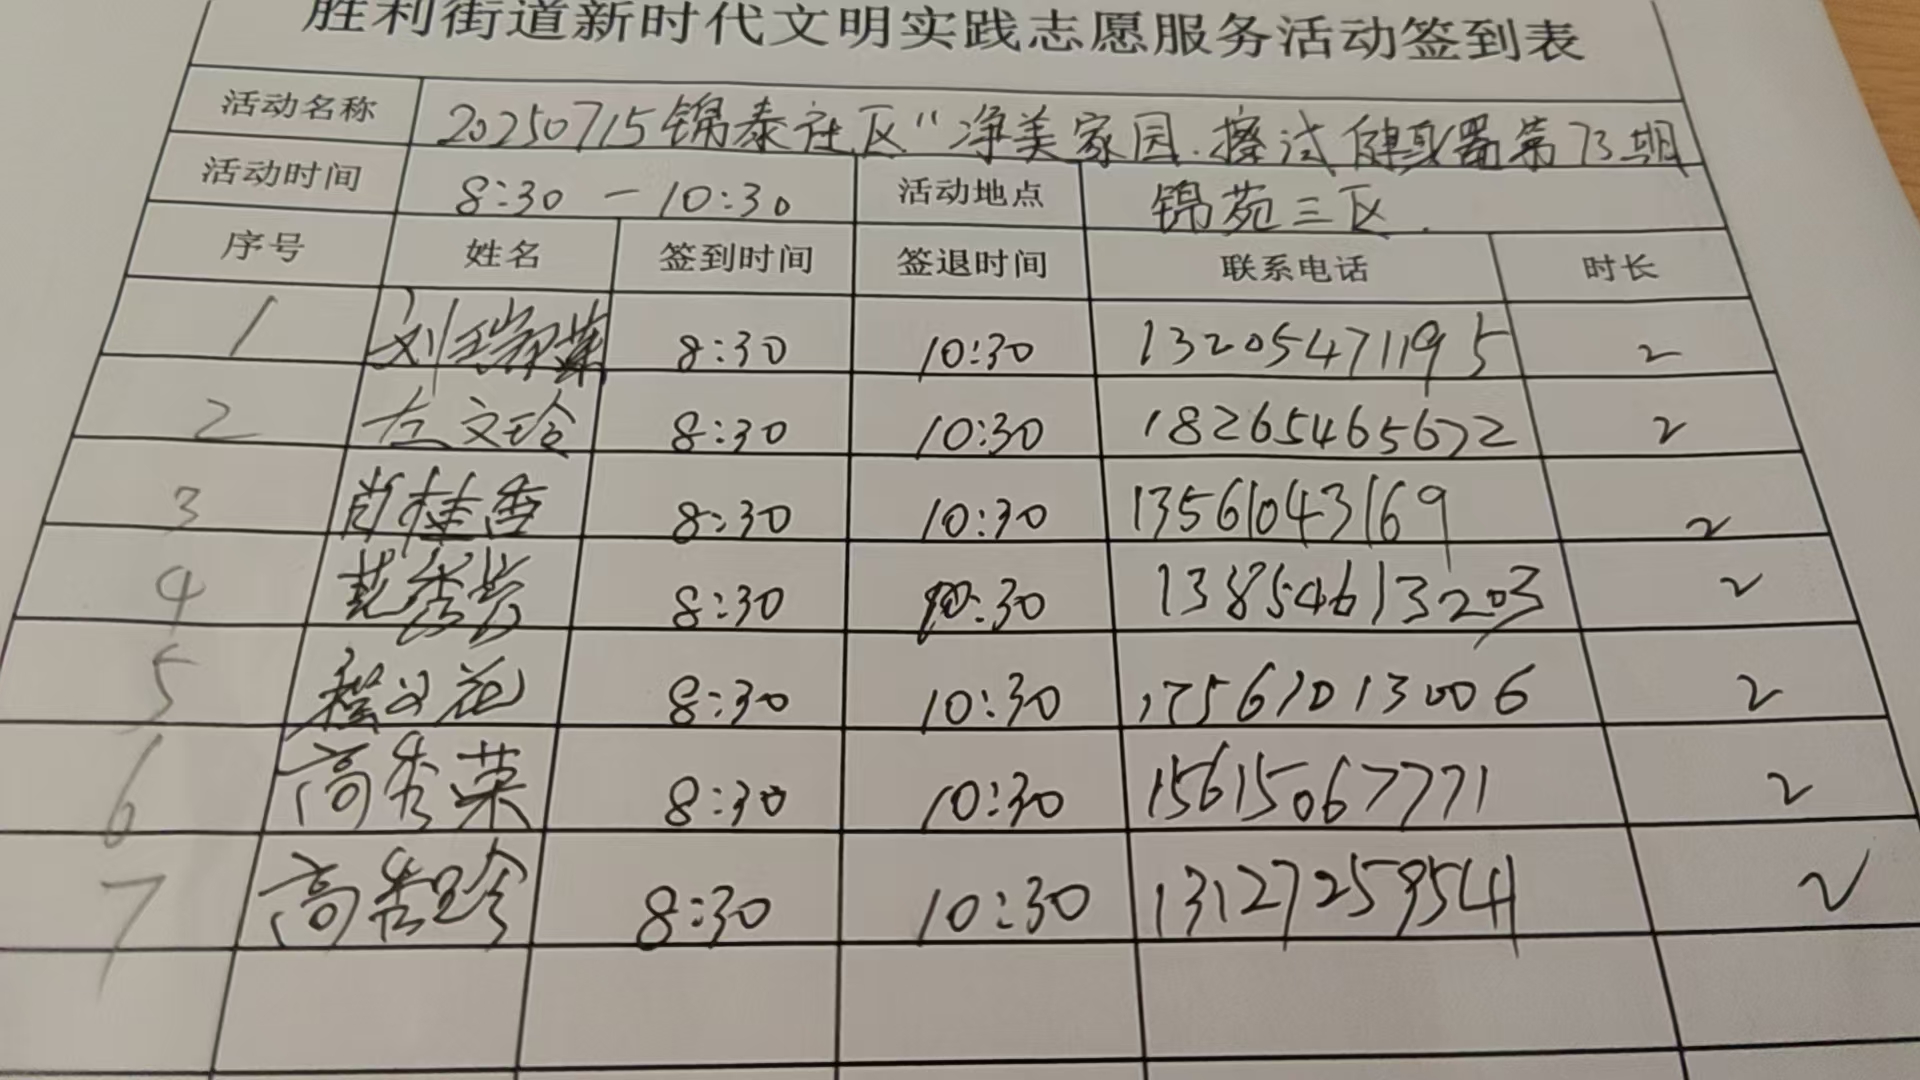 胜利街道新时代文明实践志愿服务活动签到表
活动名称 20250715锦泰社区“净美家园.擦试健身器第73期
活动时间 8:30 — 10:30 活动地点 锦苑三区.
序号 姓名 签到时间 签退时间 联系电话 时长
1 刘瑞莲 8:30 10:30 13205471195 2
2 左文玲 8:30 10:30 18265465672 2
3 肖桂香 8:30 10:30 13561043169 2
4 范秀芳 8:30 10:30 13854613203 2
5 程义花 8:30 10:30 17561013006 2
6 高秀荣 8:30 10:30 15615067771 2
7 高秀珍 8:30 10:30 13127259541 2